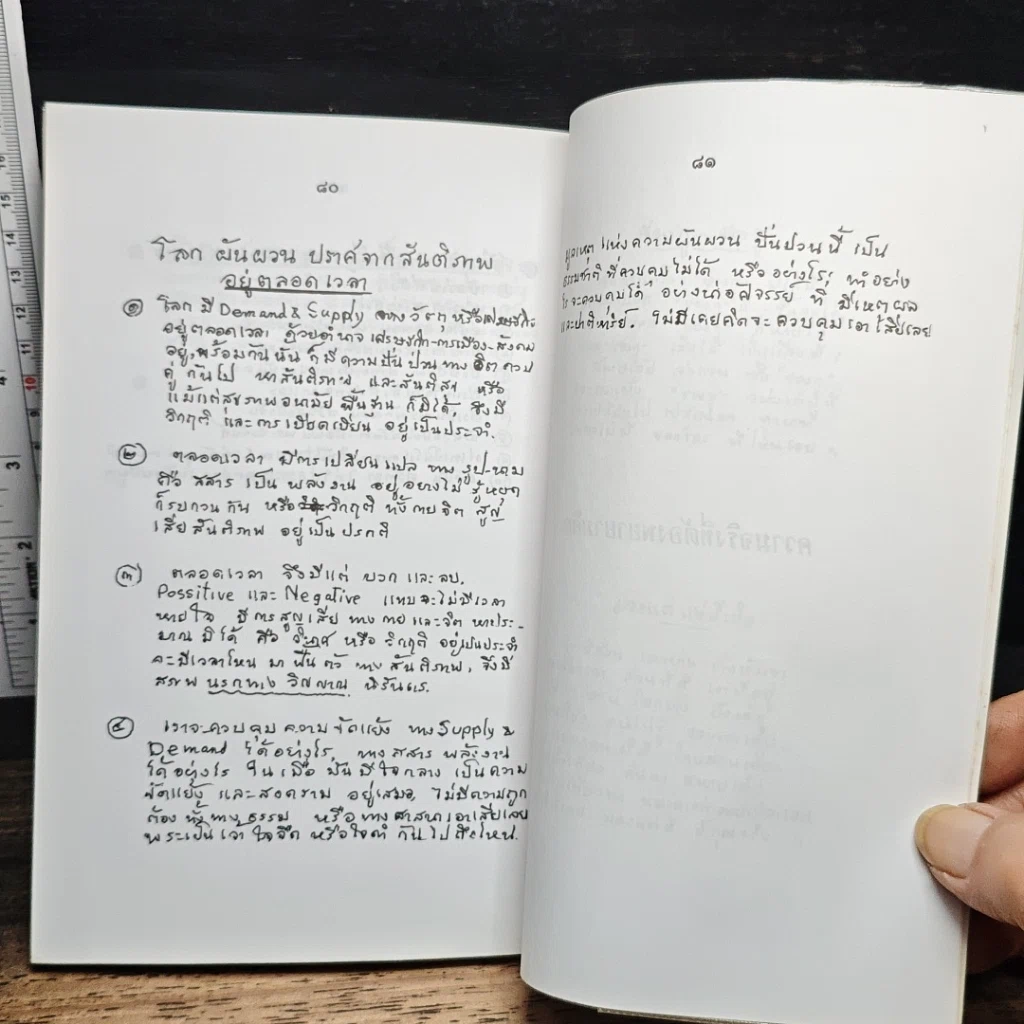 ๘๐
โลก ผันผวน ปราศจากสันติภาพ
อยู่ตลอดเวลา
๑ โลก มี Demand & Supply ทางวัตถุ หรือเศรษฐกิจ
อยู่ตลอดเวลา ด้วยอำนาจ เศรษฐกิจ-การเมือง-สังคม
อยู่, พร้อมกันนั้น ก็มีความปั่นป่วน ทางจิต ควบ
คู่ กันไป หาสันติภาพ และสันติสุข หรือ
แม้แต่สุขภาพอนามัย พื้นฐาน ก็มิได้, จึงมี
วิกฤติ และการเบียดเบียน อยู่เป็นประจำ.
๒ ตลอดเวลา มีการเปลี่ยนแปลง ทาง รูป-นาม
คือ สสาร เป็น พลังงาน อยู่อย่างไม่ รู้หยุด
ก็รบกวนกัน หรือ วิกฤติ ทั้งกายจิต สูญ
เสียสันติภาพ อยู่เป็นปรกติ
๓ ตลอดเวลา จึงมีแต่ บวก และ ลบ.
Possitive และ Negative แทบจะไม่มีเวลา
หายใจ มีการสูญเสีย ทางกายและจิต หาประ-
มาณมิได้ คือ หรือ วิกฤติ อยู่เป็นประจำ
จะมีเวลาไหน มาฟื้นตัว ทางสันติภาพ, จึงมี
สภาพ นรกทางวิญญาณ นิรันดร.
๔ เราจะควบคุม ความขัดแย้ง ทาง Supply &
Demand ได้อย่างไร, ทางสสาร พลังงาน
ได้อย่างไร ในเมื่อ มันมีใจกลาง เป็นความ
ขัดแย้ง และสงคราม อยู่เสมอ, ไม่มีความถูก
ต้อง ทั้งทางธรรม หรือทางศาสนา เอาเสียเลย
พระเป็นเจ้า ใจจืด หรือใจดำ กันไปถึงไหน.
๘๑
มูลเหตุ แห่งความผันผวน ปั่นป่วนนี้ เป็น
ธรรมชาติที่ควบคุมไม่ได้ หรืออย่างไร; ทำอย่าง
ไรจะควบคุมได้ อย่างน่าอัศจรรย์ ที่ มีเหตุผล
และปาฏิหาริย์. ไม่มีใครคิดจะควบคุมเอาเสียเลย